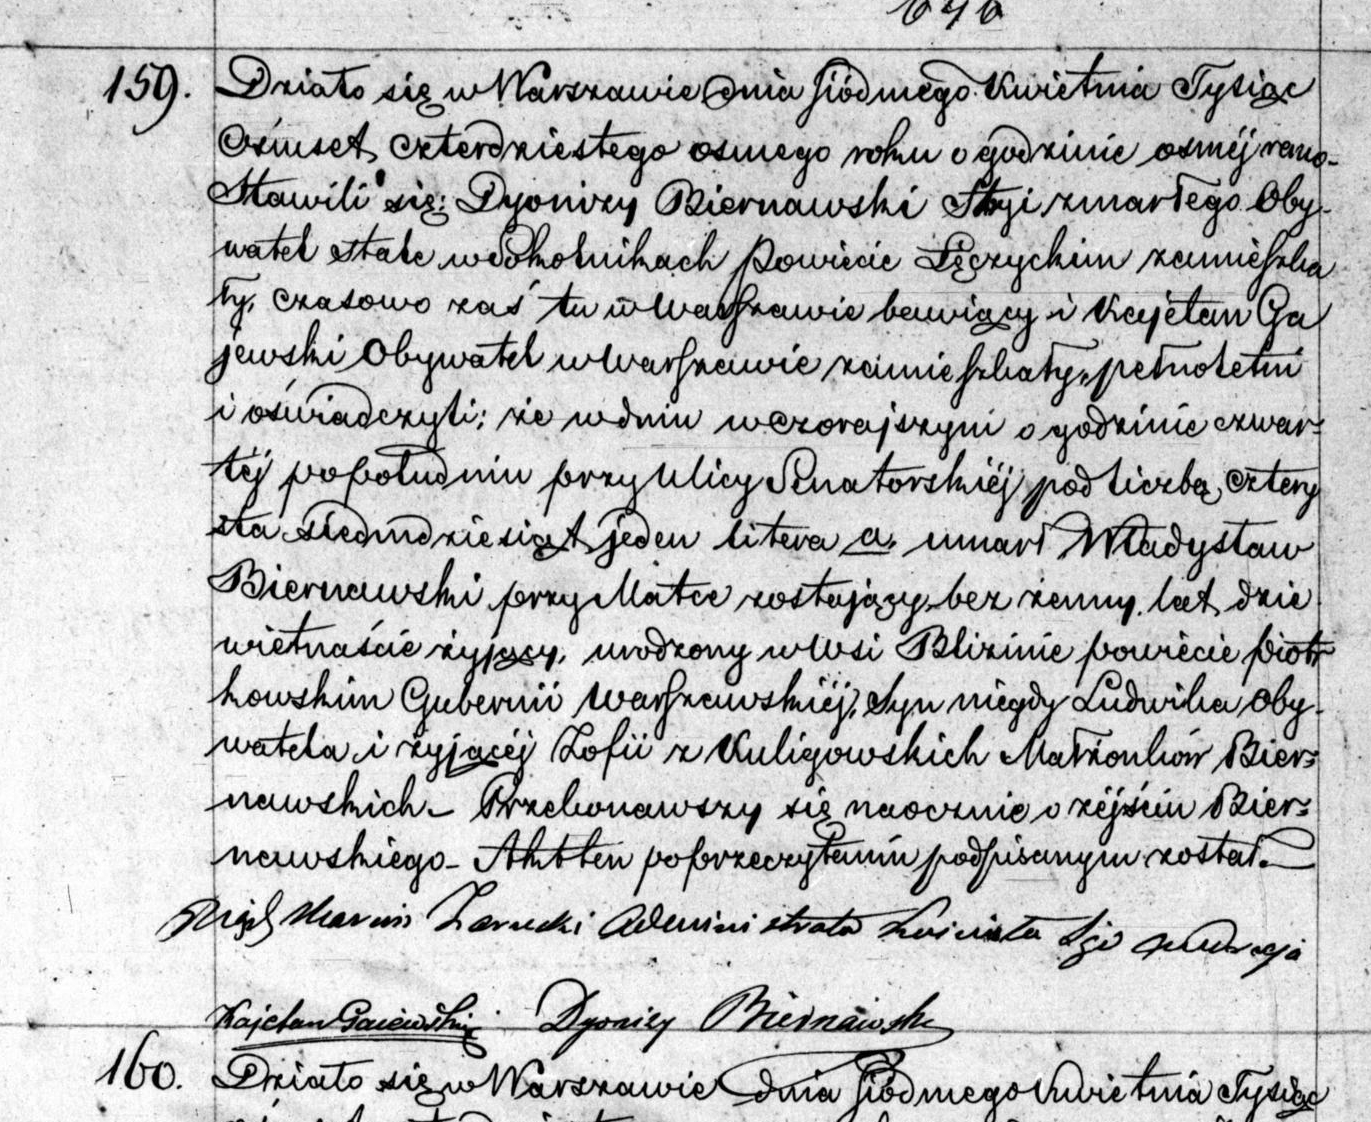 646
159. Działo się w Warszawie dnia siódmego Kwietnia Tysiąc
ośmset czterdziestego osmego roku o godzinie osmej rano-
Stawili się: Dyonizy Biernawski Stryi zmarłego Oby-
watel stale w Sokolnikach Powiecie Łęczyckim zamieszka
ły, czasowo zaś tu w Warszawie bawiący i Kajetan Ga
jewski Obywatel w Warszawie zamieszkały, pełnoletni
i oświadczyli; że w dniu wczorajszym o godzinie czwar=
tej popołudniu przy Ulicy Senatorskiej pod liczbą cztery
sta siedmdziesiąt jeden litera a. umarł Władysław
Biernawski przy Matce zostający bez żenny. lat dzie
więtnaście żyjący, urodzony w Wsi Blizinie powiecie piotr
kowskim Gubernii Warszawskiej, Syn niegdy Ludwika Oby-
watela i żyjącej Zofii z Kuligowskich Małżonków Bier=
nawskich_ Przekonawszy się naocznie o zejściu Bier=
nawskiego_ Akt ten po przeczytaniu podpisanym został._
Marcin Zarucki
Kajetan Gaiewski Dyonizy Biernawski
160. Działo się w Warszawie dnia siódmego Kwietnia Tysiąc